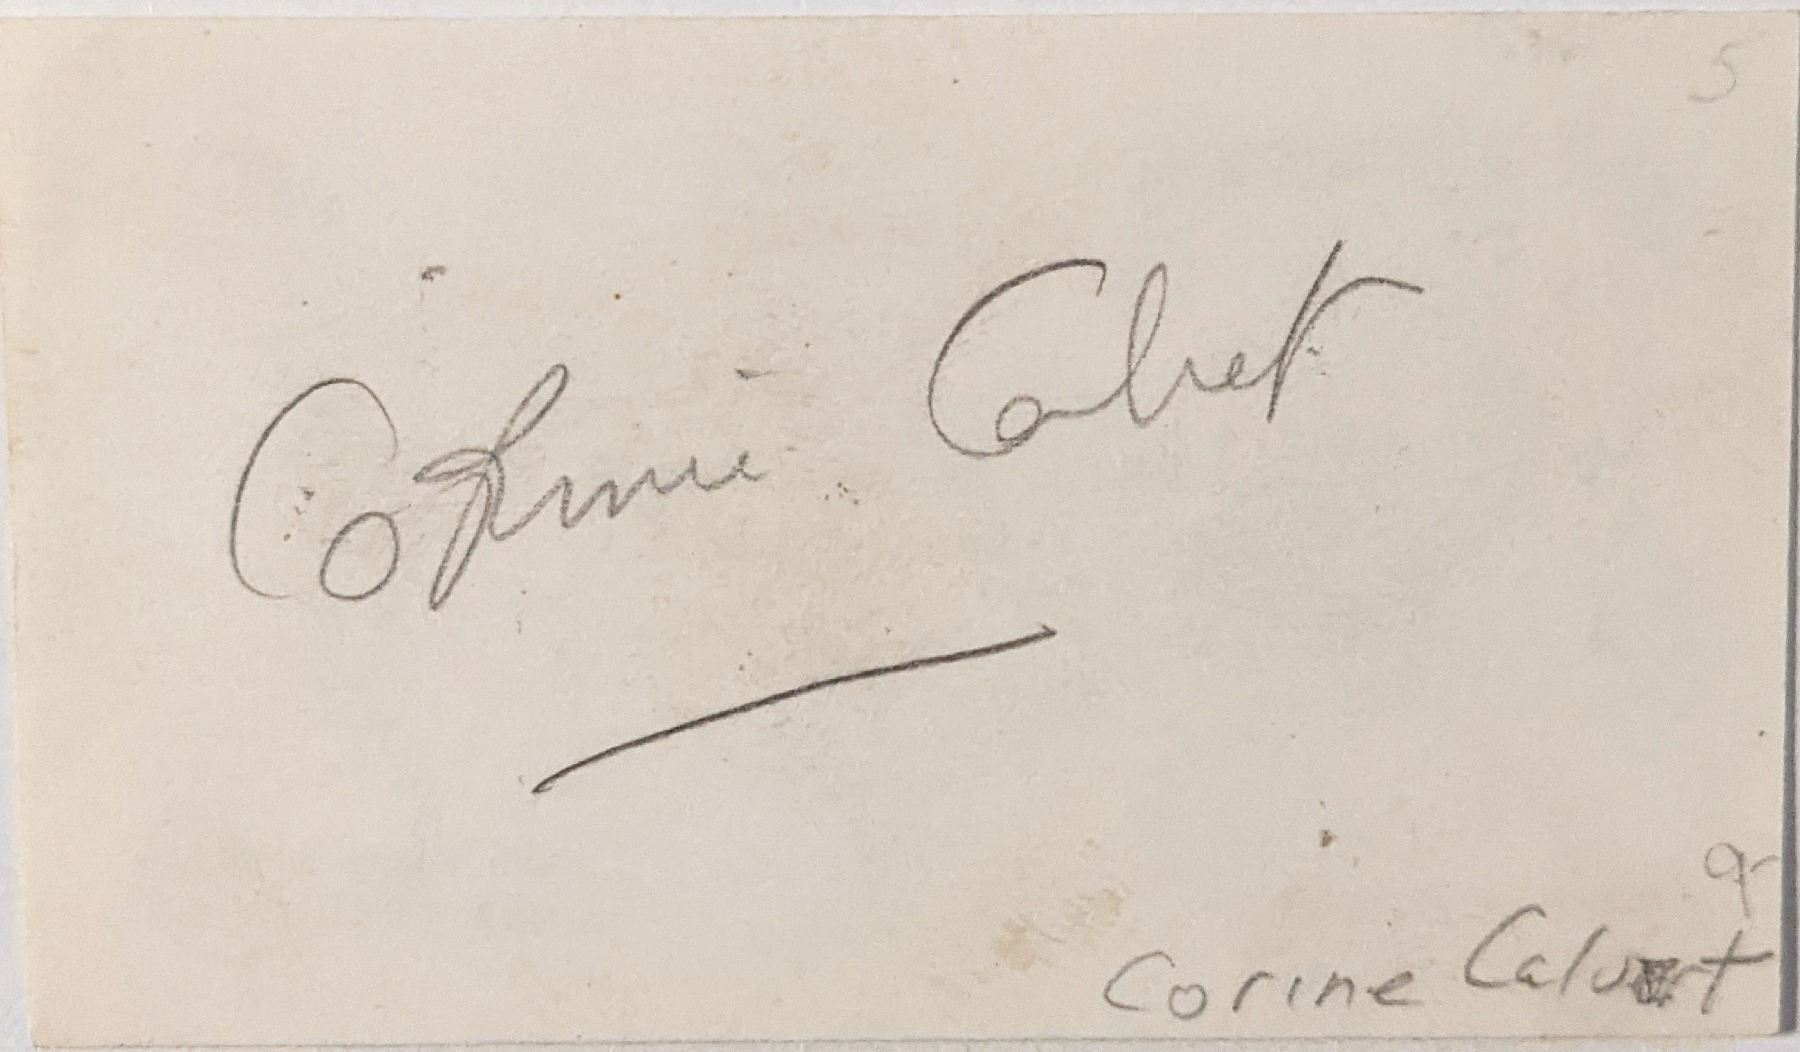 5
Corinne Calvet
Corine Calvert